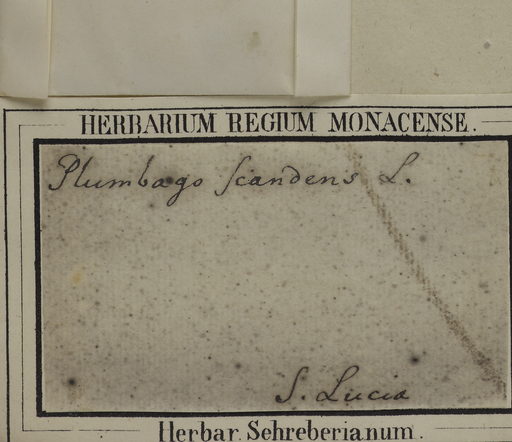 HERBARIUM REGIUM MONACENSE.
Plumbago scandens L.
S. Lucia
Herbar. Schreberianum.